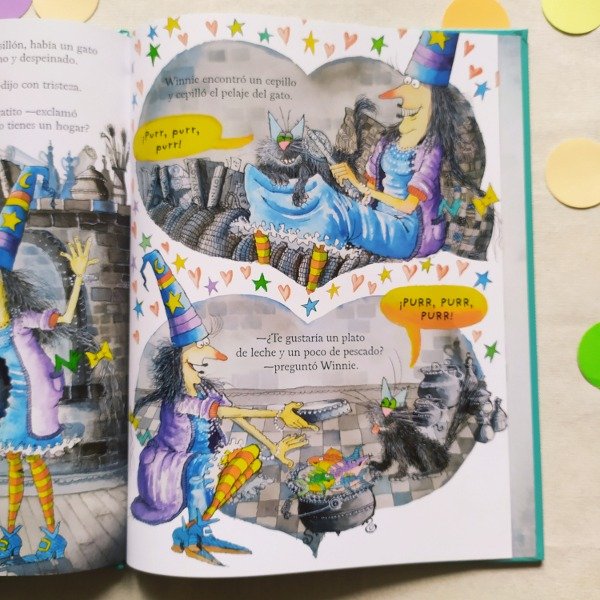 sillón, había un gato
y despeinado.
dijo con tristeza.
—exclamó
tienes un hogar?
Winnie encontró un cepillo
y cepilló el pelaje del gato.
¡PURR, PURR,
PURR!
—¿Te gustaría un plato
de leche y un poco de pescado?
—preguntó Winnie.
¡PURR, PURR,
PURR!